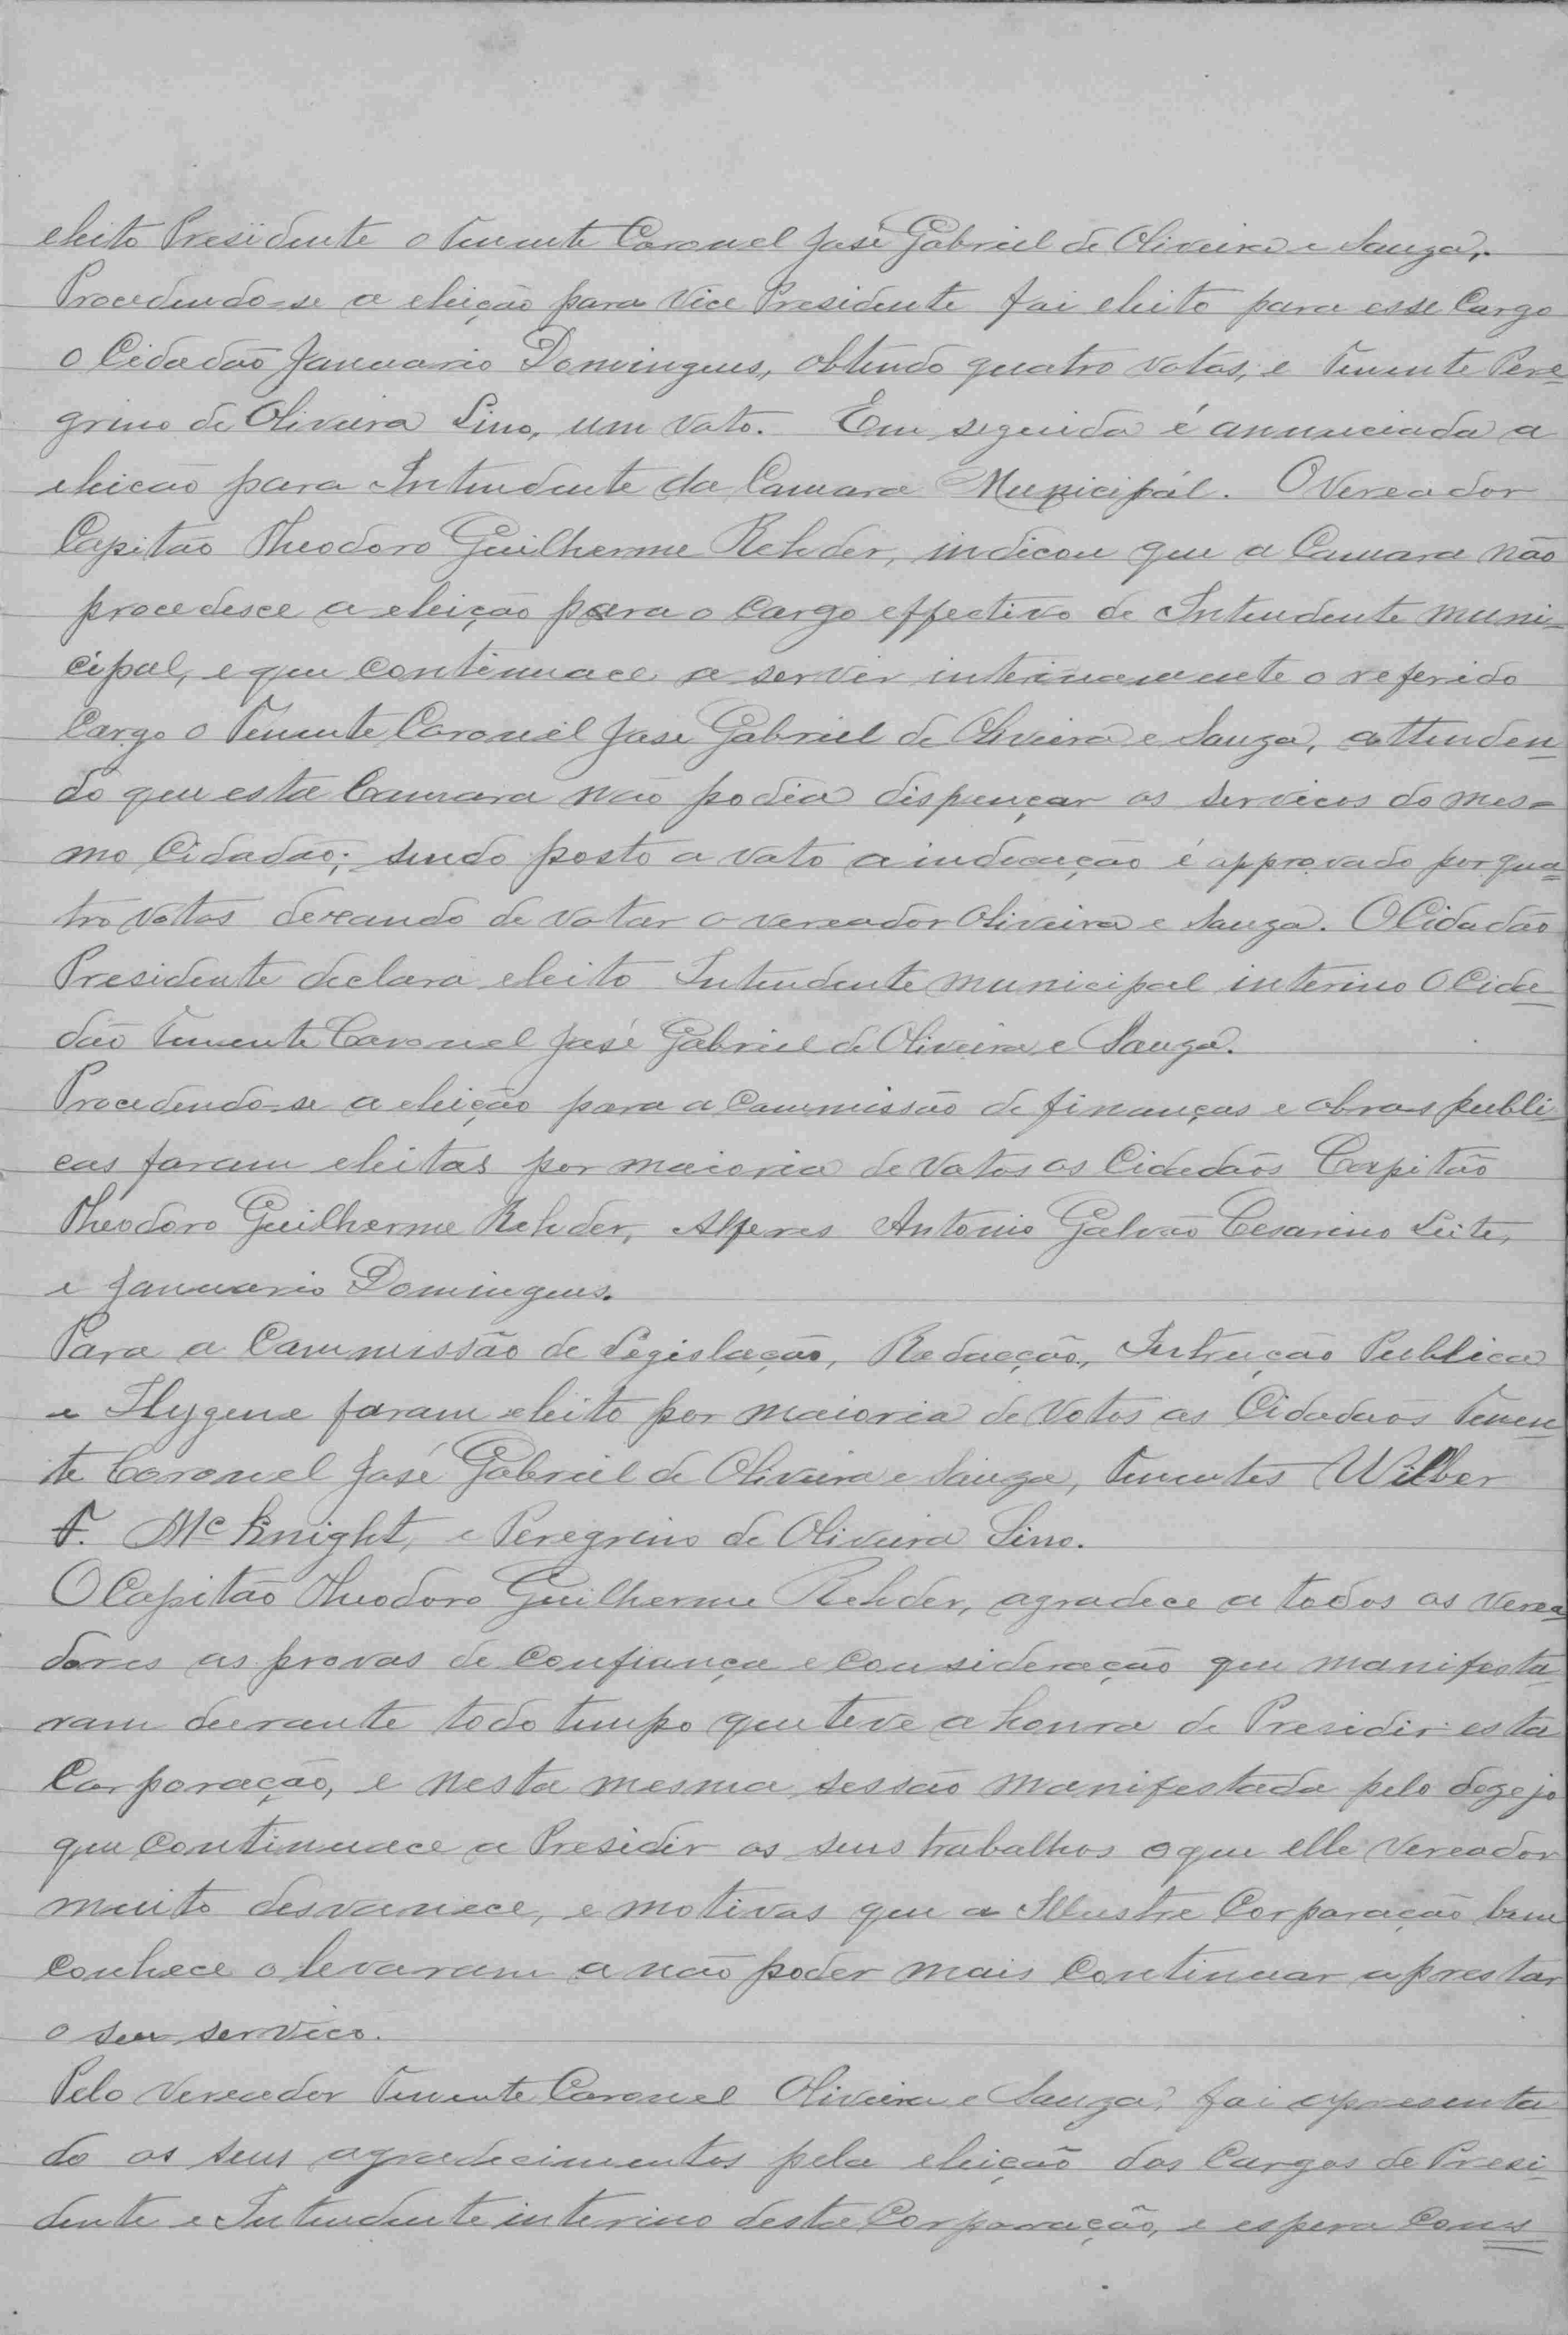 eleito Presidente o Tenente Coronel José Gabriel de Oliveira e Souza,.
Procedendo-se a eleição para Vice Presidente foi eleito para esse Cargo
o Cidadão Januario Domingues, obtendo quatro votos, e Tenente Pere=
grino de Oliveira Lino, um voto. Em seguida é annunciada a
eleicão para Intendente da Camara Municipál. O Vereador
Capitão Theodoro Guilherme Rehder, indicou que a Camara não
procedesce a eleição para o Cargo effectivo de Intendente muni=
cipal, e que continuace a servir interinamente o referido
Cargo o Tenente Coronel José Gabriel de Oliveira e Souza, attenden
do que esta Camara não podia dispençar os servicos do mes=
mo Cidadão; sendo posto a voto a indicação é approvado por qua=
tro votos dexando de votar o vereador Oliveira e Souza. O Cidadão
Presidente declara eleito Intendente municipal interino o Cida
dão Tenente Coronel José Gabriel de Oliveira e Souza.
Procedendo-se a eleição para a Commissão de finanças e obras publi
cas foram eleitos por maioria de votos os Cidadãos Capitão
Theodoro Guilherme Rehder, Alferes Antonio Galvão Cesarino Leite,
e Januario Domingues.
Para a Commissão de Legislação, Redacção, Intrução Publica
e Hygene foram eleito por maioria de votos os Cidadãos Tenen
te Coronel José Gabriel de Oliveira e Souza, Tenentes Wilber
F. Mc Knight, e Peregrino de Oliveira Lino.
O Capitão Theodoro Guilherme Rehder, agradece a todos os verea
dores as provas de Confiança e Consideração que manifesta
ram durante todo tempo que teve a honra de Presidir esta
Corporação, e nesta mesma sessão manifestada pelo dezejo
que Continuace a Presidir os seus trabalhos o que elle Vereador
muito desvanece, e motivos que a Illustre Corporação bem
Conhece o levaram a não poder mais Continuar a prestar
o seu servico.
Pelo Vereador Tenente Coronel Oliveira e Souza, foi apresenta
do os seus agradecimentos pela eleição dos Cargos de Presi=
dente e Intendente interino desta Corporação, e espera Com os